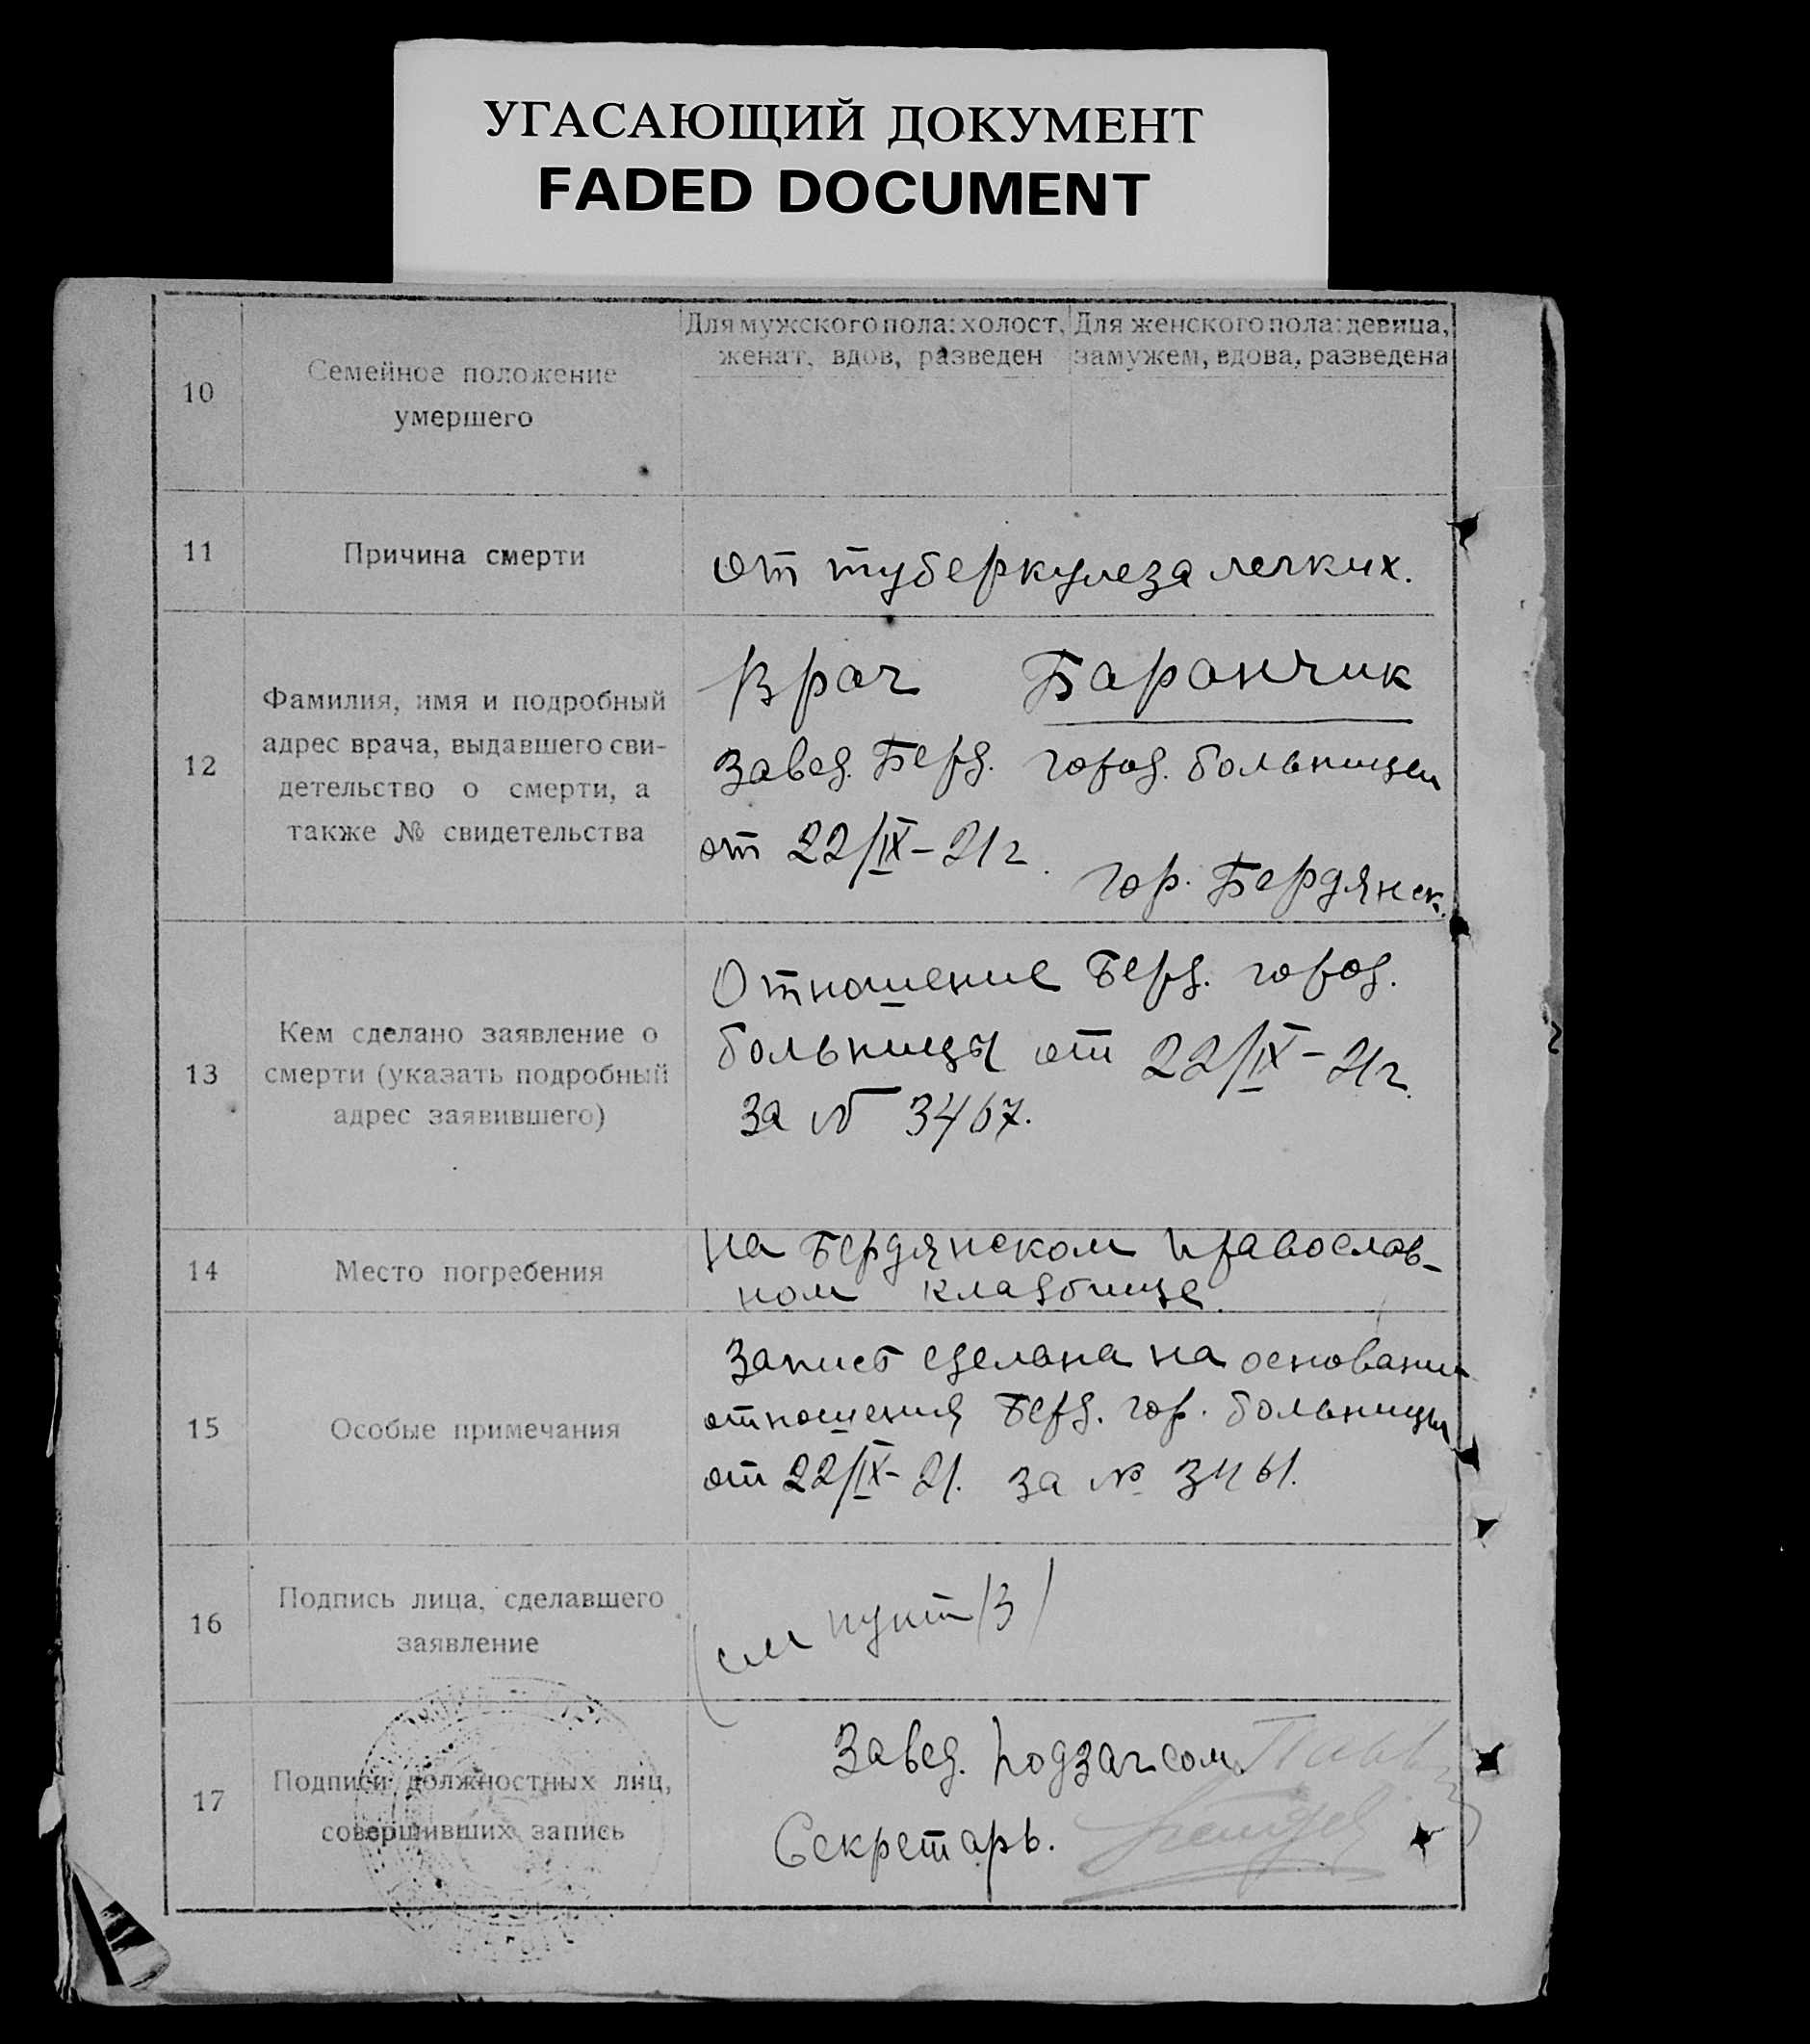 УГАСАЮЩИЙ ДОКУМЕНТ
FADED DOCUMENT
10
Семейное положение
умершего
Для мужского пола: холост,
женат, вдов, разведен
Для женского пола: девица,
замужем, вдова, разведена
11
Причина смерти
от туберкулеза легких.
12
Фамилия, имя и подробный
адрес врача, выдавшего сви-
детельство о смерти, а
также № свидетельства
Врач Баранчик
Завед. Берд. город. больницей
от 22/IX-21г.
гор. Бердянск.
13
Кем сделано заявление о
смерти (указать подробный
адрес заявившего)
Отношение Берд. город.
больницы от 22/IX-21г.
за № 3467.
14
Место погребения
на Бердянском православ-
ном кладбище.
15
Особые примечания
Запись сделана на основании
отношения Берд. гор. больницы
от 22/IX-21. за № 3461.
16
Подпись лица, сделавшего
заявление
(см пункт 13)
17
Подписи должностных лиц,
совершивших запись
Завед. подзагсом
Секретарь.